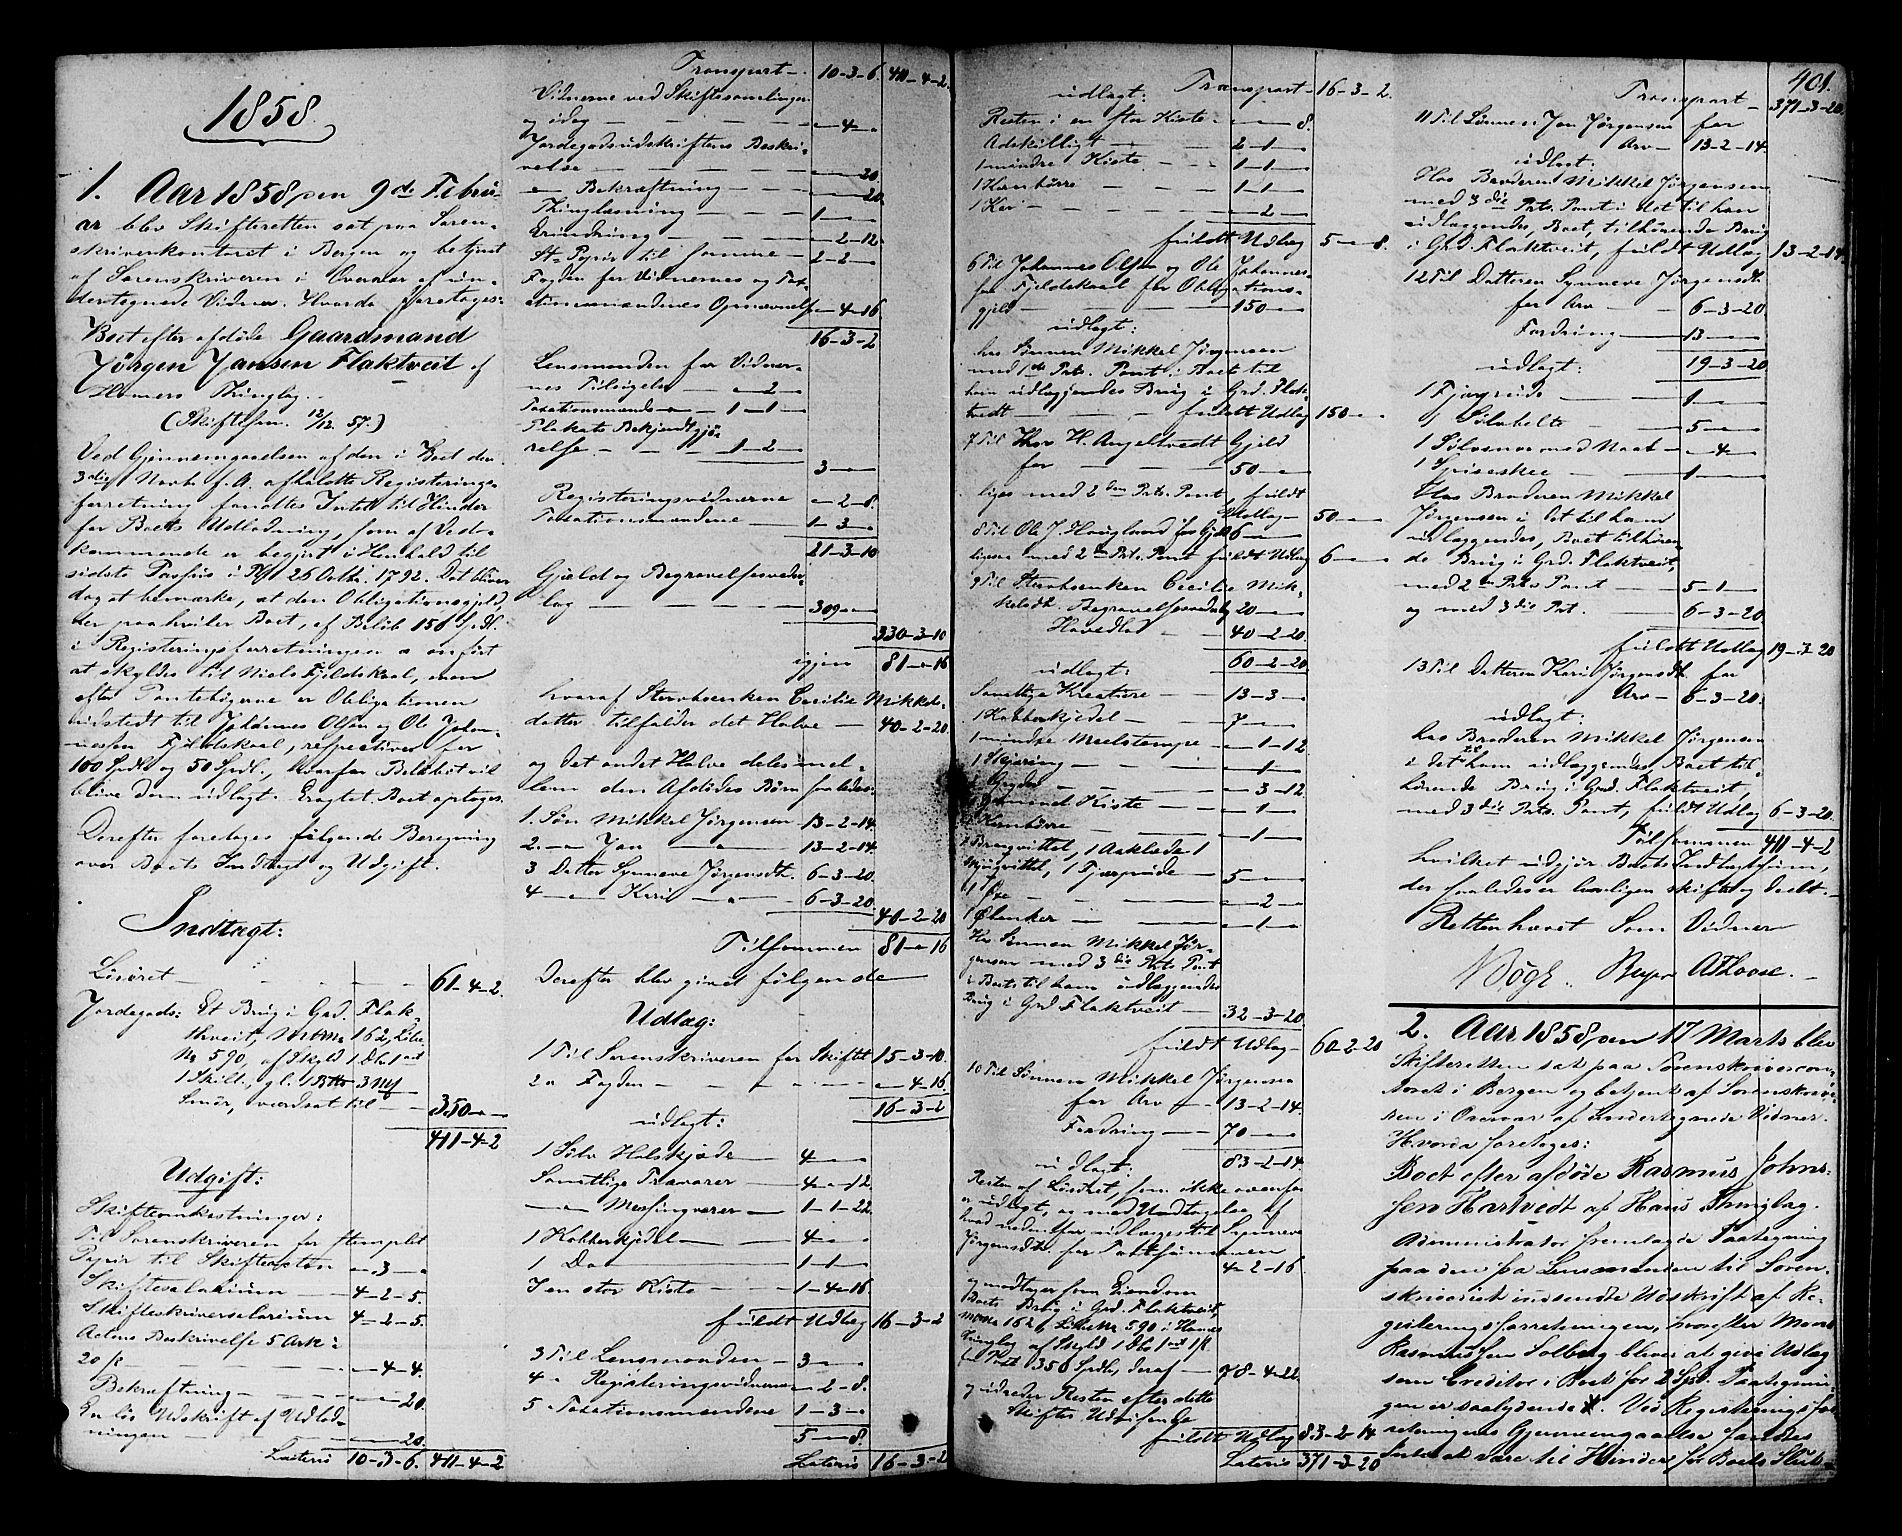 1858.
1. Aar 1858, den 9de Febru-
ar blev Skifteretten sat paa Soren-
skriverkontoret i Bergen og betjent
af Sorenskriveren i Overvær af un-
dertegnede Vidner. Hvorda foretoges:
Boet efter afdøde Gaardmand
Jørgen Jansen Flaktveit af
Hammers Thinglag.
(Skiftesam. 12/12 57.)
Ved Gjennemgaaelsen af den i Boet den
3die Novbr f. A. afholdte Registrerings-
forretning fandtes Intet til Hinder
for Boets Udlodning, som af Ved-
kommende er begjert i Henhold til
sidste Passus i Pl. 26 Octbr. 1792. Det bliver
dog at bemærke, at den Obligationsgjeld,
der paahviler Boet, af Beløb 150 Spdl.
i Registreringsforretningen er anført
at skyldes til Niels Fjeldskaal, men
efter Pantebøgerne er Obligationen
udstedt til Johannes Olsen og Ole Johan-
nessen Fjeldskaal, respective for
100 Spdl og 50 Spdl., hvorfor Beløbet vil
blive dem udlagt. Eragtet: Boet optages.
Derefter foretoges følgende Beregning
over Boets Indtægt og Udgift.
Indtægt:
Løsøret - 61-4-2.
Jordegods: Et Brug i Grd. Flak-
thveit, Matr. No 162, Løbe
No 590, af Skyld 1 Dl. 1 ort
1 Skill., gl.
Smør, værdsat til - 350-"-"
411-4-2
Udgift:
Skifteomkostninger:
Til Sorenskriveren for stemplet
Papir til Skifteakten "-3-"
Skiftesalarium - 4-2-5.
Skifteskriversalarium 4-2-5.
Actens Beskrivelse 5 Ark à
20 s - "-4-4.
Bekræftning - "-"-20.
En løs Udskrift af Udlod-
ningen - "-"-20.
Lateris 10-3-6. 411-4-2
Transport - 10-3-6. 411-4-2.
Vidnerne ved Skiftesamlingen
og idag - "-4-"
Jordegodsudskriftens Beskri-
velse - "-"-20.
" Bekræftning - "-"-20
Thinglæsning - 1-"-"
Erindring - "-2-12.
St. Papir til samme - 2-2-"
Fogden for Vidnernes og Tax-
ationsmændenes Opnævnelse "-4-16
16-3-2
Lensmanden for Vidner-
nes Tilsigelse - "-2-"
Taxationsmænds " - 1-1-"
Plakats Bekjendtgjø-
relse. - 1-2-"
3-"-"
Registreringsvidnerne "-2-8.
Taxationsmændene - 1-3-"
21-3-10
Gjæld og Begravelsesveder-
lag - 309-"-"
330-3-10
igjen 81-"-16
hvoraf Stervboenken Cecilie Mikkels-
datter tilfalder det Halve - 40-2-20.
og det andet Halve deles imel-
lem den Afdødes Børn saaledes:
1. Søn Mikkel Jørgensen 13-2-14.
2. " Jan " 13-2-14.
3 Datter Synneve Jørgensdt. 6-3-20.
4 " Kari " 6-3-20.
40-2-20
Tilsammen 81-"-16
Derefter blev gjort følgende
Udlæg:
1 Til Sorenskriveren for Skiftet 15-3-10.
2 " Fogden - "-4-16.
16-3-2
udlagt:
1 Sølv Halskjæde - 4-"-"
Samtlige Trævarer - 4-"-12
" Messingvarer - 1-1-22.
1 Kobberkjedel - 4-"-"
1 Do - 1-1-"
I en stor Kiste - 1-4-16
fuldt Udlæg 16-3-2
3 Til Lensmanden - 3-"-"
4 " Registreringsvidnerne "-2-8.
5 " Taxationsmændene 1-3-"
5-"-8.
Lateris 16-3-2
Transport - 16-3-2.
udlagt:
Resten i en stor Kiste - "-"-8.
Adskilligt - 2-1-"
1 mindre Kiste - 1-1-"
1 Kornbørre - 1-1-"
1 Kar - "-2-"
fuldt Udlæg 5-"-8.
6 Til Johannes Olsen og Ole Johannes-
sen Fjeldskaal for Obligations-
gjeld - 150-"-"
udlagt:
hos Sønnen Mikkel Jørgensen
med 1ste Prts. Pant i Boet til
ham udlæggendes Brug i Grd. Flak-
tvedt - fuldt Udlæg 150-"-"
7 Til Thor H. Angeltvedt Gjeld
for - 50-"-"
liges med 2den Prts. Pant, fuldt
Udlæg - 50-"-"
8 Til Ole J. Haugland for Gjeld 6-"-"
ligesaa med 2den Prts. Pant fuldt Udlæg 6-"-"
9 Til Stervboenken Cecilie Mik-
kelsdt. Begravelsesvederlag 20-"-"
Hovedlod - 40-2-20.
60-2-20.
udlagt:
Samtlige Kreature - 13-3-"
1 Kobberkjedel - 7-"-"
1 mindre Meelstampe - "-1-12
1 Skjæring - "-1-"
1 Gryde - "-3-12
1 gammel Kiste - "-1-"
1 Kornbørre - "-1-"
1 Brogvittel, 1 Aaklæde 1
1 Fjærpude - 5-"-"
1 Øxe - "-2-"
1 Ølanker - "-1-"
Hos Sønnen Mikkel Jør-
gensen med 3die Prts Pant
i Boets til ham udlæggendes
Brug i Grd Flaktveit - 32-3-20
fuldt Udlæg - 60-2-20
10 Til Sønnen Mikkel Jørgensen
for Arv - 13-2-14.
Fordring - 70-"-"
udlagt: 83-2-14
Resten af Løsøret, som ikke ovenfor
er udlagt, og med Undtagelse af
hvad nedenfor udlægges til Synneve
Jørgensdt., for Taxtsummen
4-2-16.
og modtager som Eiendom
Boets Brug i Grd. Flaktveit,
Matr No 162, Løbe No 590 i Hamers
Thinglag af Skyld 1 Dl. 1 ort 1 s.
for Taxt 350 Spdl., deraf - 78-4-22.
og udreder Resten efter dette
Skiftes Udvisende
fuldt Udlæg 83-2-14
Lateris 371-3-20
401.
Transport - 371-3-20.
11 Til Sønnen Jan Jørgensen for
Arv - 13-2-14.
udlagt:
Hos Broderen Mikkel Jørgensen
med 3die Prts. Pant i det til ham
udlæggendes, Boet, tilhørende Brug
i Grd. Flaktveit, fuldt Udlæg 13-2-14.
12 Til Datteren Synneve Jørgensdt.
for Arv - 6-3-20.
Fordring - 13-"-"
19-3-20
udlagt:
1 Fjærpude - 1-"-"
1 Sølvbelte - 5-"-"
1 Sølvsnor med Naal - "-4-"
1 Spiseskee - 1-"-"
Hos Broderen Mikkel
Jørgensen i det til ham
udlæggendes, Boet tilhøren-
de Brug i Grd. Flaktveit,
med 2den Prts Pant - 5-1-"
og med 3die Prt. 6-3-20
fuldt Udlæg 19-3-20
13 Til Datteren Kari Jørgensdt. for
Arv - 6-3-20.
udlagt:
hos Broderen Mikkel Jørgensen
i det til ham udlæggende Boet til-
hørende Brug i Grd. Flaktveit,
med 3die Prts. Pant, fuldt Udlæg 6-3-20.
Tilsammen 411-4-2
hvilket udgjør Boets Indtægtssum,
der saaledes er lovligen skiftet og deelt.
Retten hævet Som Vidner
Bøgh. Meyer A Thoose.
2. Aar 1858, den 17 Marts blev
Skifteretten sat paa Sorenskrivercon-
toret i Bergen og betjent af Sorenskrive-
ren i Overvær af undertegnede Vidner.
Hvorda foretoges:
Boet efter afdøde Rasmus Johns-
sen Hartvedt af Haus Thinglag.
Administrator fremlagde Paategning
paa den fra Lensmanden til Soren-
skriveriet indsendte Udskrift af Re-
gistreringsforretningen, hvorefter Mons
Rasmussen Solberg bliver at give Udlæg
som Creditor i Boet for 2 Spd. Paategnin-
gen er saalydende #. Ved Registreringsfor-
retningens Gjennemgaaelse fandtes
Intet at være til Hinder for Boets Slut-